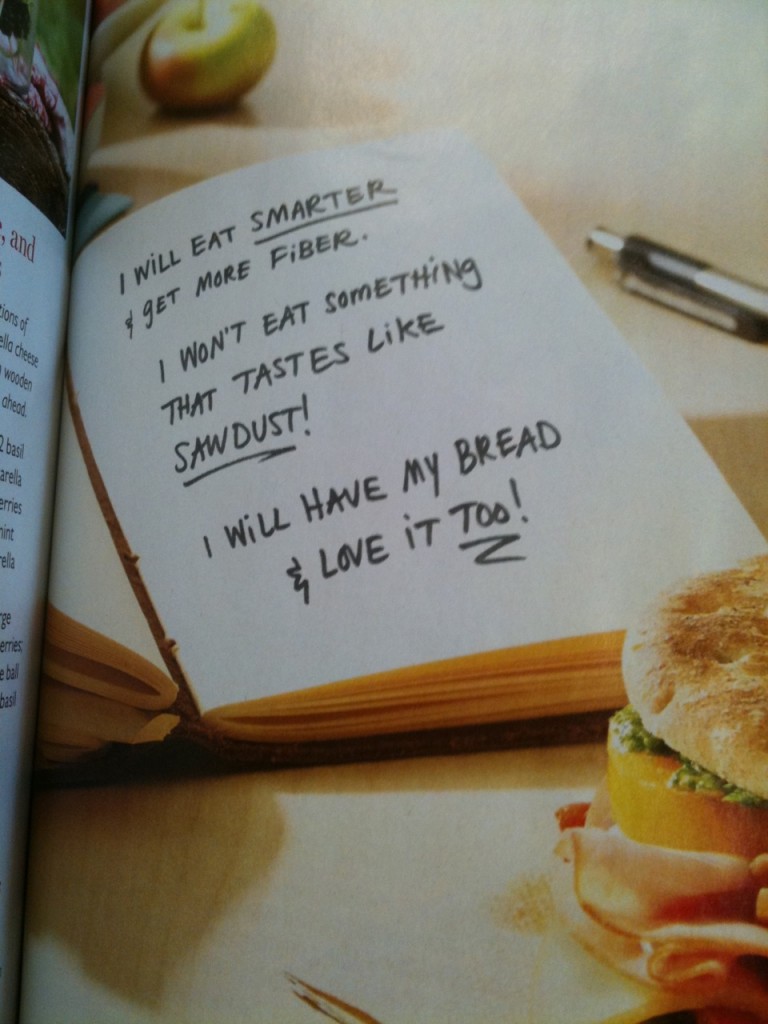 I WILL EAT SMARTER
& GET MORE FIBER.
I WON'T EAT SOMETHING
THAT TASTES LIKE
SAWDUST!
I WILL HAVE MY BREAD
& LOVE IT TOO!
, and
tions of
ella cheese
wooden
ahead.
2 basil
arella
erries
mint
rella
rge
erries;
e ball
basil